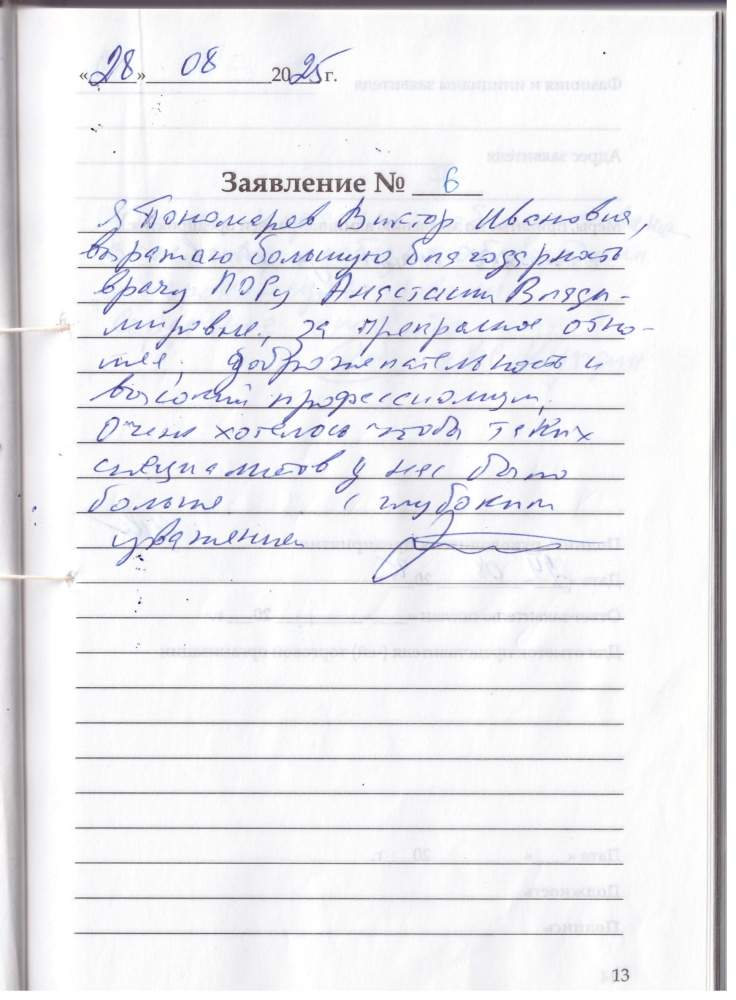 «28» 08 2025 г.
Заявление № 6
Я Пономарев Виктор Иванович,
выражаю большую благодарность
врачу ЛОРу Анастасии Влади-
мировне, за прекрасное отно-
шее, доброжелательность и
высокий профессионализм,
Очень хотелось чтобы таких
специалистов у нас было
больше с глубоким
уважением
13